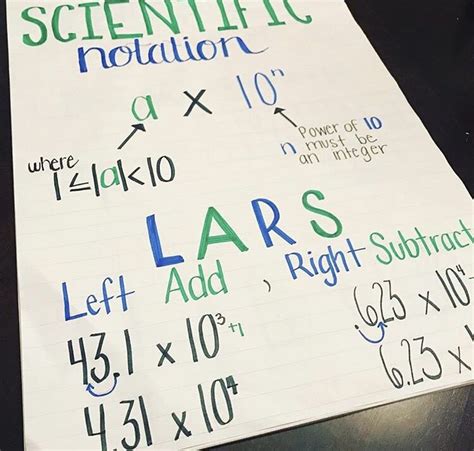 SCIENTIFIC
notation
a x 10ⁿ
where
1≤|a|<10
Power of 10
n must be
an integer
LARS
Left Add, Right Subtract
43.1 x 10³⁺¹
.623 x 10
4.31 x 10⁴
6.23 x